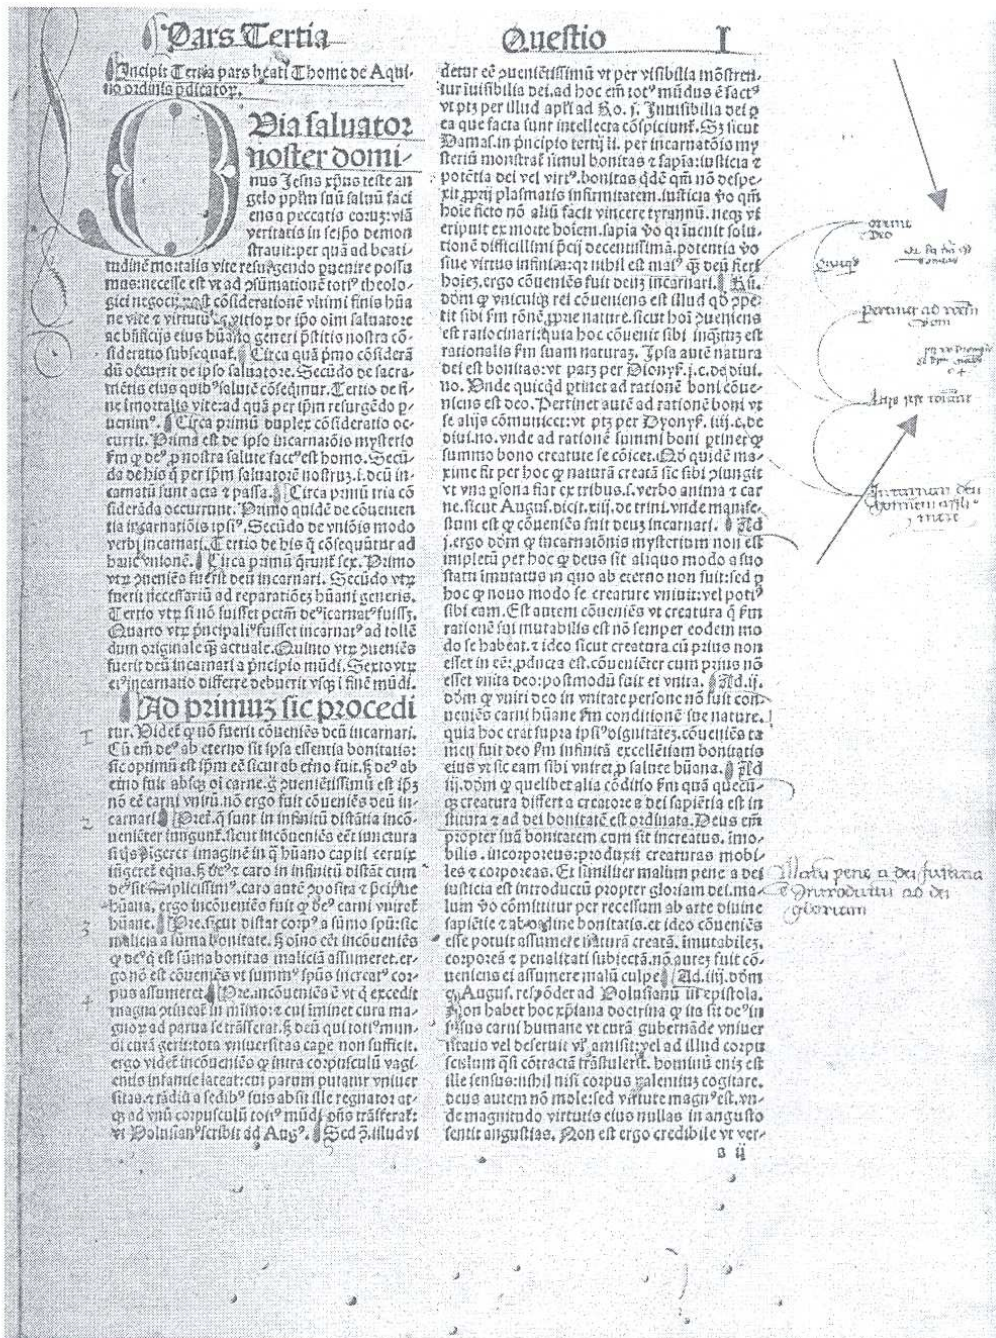 Pars Tertia
Questio I
Incipit Tertia pars beati Thome de Aqui-
no ordinis p̄dicatoꝝ.
QVia saluator
noster domi-
nus Jesus xp̄us teste an
gelo pp̄lm suū saluū faci
ens a peccatis eoruꝫ: viā
veritatis in seip̄o demon
strauit: per quā ad beati-
tudinē mortalis vite resurgendo ꝑuenire possu
mus: necesse est vt ad ꝯsūmationē totiꝰ theolo-
gici negocij: post cōsiderationē vltimi finis hūa
ne vite ⁊ virtutū ⁊ vitioꝝ de ip̄o oīm saluatore
ac bn̄ficijs eius hūano generi p̄stitis nostra cō-
sideratio subsequat̄. Circa quā p̄mo cōsiderā
dū occurrit de ipso saluatore. Secūdo de sacra-
mētis eius quibꝰ salutē cōseqimur. Tertio de fi-
ne īmortalis vite: ad quā per ip̄m resurgēdo ꝑ-
uenimꝰ. Circa primū duplex cōsideratio oc-
currit. Prima est de ipso incarnatōis mysterio
ẜm ꝙ deꝰ ꝓ nostra salute factꝰ est homo. Secū-
da de his q̄ per ip̄m saluatorē nostruꝫ .i. deū in-
carnatū sunt acta ⁊ passa. Circa primū tria cō
siderāda occurrunt. Primo quidē de cōuenien
tia incarnatiōis ipsiꝰ. Secūdo de vniōis modo
verbi incarnati. Tertio de his q̄ cōsequūtur ad
hanc vnionē. Circa primū q̄runt̄ sex. Primo
vtꝝ ꝯueniēs fuerit deū incarnari. Secūdo vtꝝ
fuerit necessariū ad reparationeꝫ hūani generis.
Tertio vtꝝ si nō fuisset pctm̄ deꝰ īcarnatꝰ fuissꝫ.
Quarto vtꝝ p̄ncipaliꝰ fuisset incarnatꝰ ad tollē
dum originale q̄ꝫ actuale. Quinto vtꝝ ꝯueniēs
fuerit deū incarnari a p̄ncipio mūdi. Sexto vtꝝ
eiꝰ incarnatio differre debuerit vsqꝫ ī finē mūdi.
Ad primuꝫ sic procedi
1
tur. Videt̄ ꝙ nō fuerit cōueniēs deū incarnari.
Cū em̄ deꝰ ab eterno sit ipsa essentia bonitatis:
sic optimū est ip̄m eē sicut ab et̄no fuit. ẜꝫ deꝰ ab
et̄no fuit absqꝫ oī carne. ḡ ꝯuenientissimū est ip̄ꝫ
nō eē carni vnitū. nō ergo fuit cōueniēs deū in-
2
carnari. Pret̄. q̄ sunt in infinitū distātia incō-
ueniēter iungunt̄. sicut incōueniēs eēt iunctura
si q̄s pigeret imaginē in q̄ hūano capiti ceruix
iūgeret̄ eqͥna. ẜꝫ deꝰ ⁊ caro in infinitū distāt cum
deꝰ sit simplicissimꝰ. caro autē ꝯposita ⁊ p̄cipue
hūana, ergo incōueniēs fuit ꝙ deꝰ carni vniret̄
3
hūane. Pre. sicut distat corpꝰ a sūmo spū: sic
malicia a sūma bonitate. ẜꝫ oīno eēt incōueniēs
ꝙ deꝰ q̄ est sūma bonitas maliciā assumeret. er-
go nō est cōueniēs vt summꝰ spūs increatꝰ cor-
4
pus assumeret. Pre. incōueniēs ē vt q̄ excedit
magna ꝯtineat̄ in mīmo: ⁊ cui īminet cura ma-
gnoꝝ ad parua se trāsferat. ẜꝫ deū qui totiꝰ mun-
di curā gerit: tota vniuersitas cape nō sufficit.
ergo videt̄ incōueniēs ꝙ intra corpusculū vagi-
entis infantie lateat: cui parum putatur vniuer
sitas. ⁊ tādiu a sedibꝰ suis absit ille regnator at-
qꝫ ad vnū corpusculū totiꝰ mūdi cura trāsferat̄:
vt Volusianꝰ scribit ad Augꝰ. Sed ꝯ. illud vi
detur eē ꝯueniētissimū vt per visibilia mōstren-
tur īuisibilia dei. ad hoc em̄ totꝰ mūdus ē factꝰ
vt ptꝫ per illud apl̄i ad Ro. j. Inuisibilia dei ꝑ
ea que facta sunt intellecta cōspiciunt̄. Sꝫ sicut
Damas. in p̄ncipio tertij li. per incarnatōis my
steriū monstrat̄ simul bonitas ⁊ sapīa: iusticia ⁊
potētia dei vel virtꝰ. bonitas qd̄ē qm̄ nō despe-
xit ꝓprij plasmatis infirmitatem. iusticia v̄o qm̄
hoīe victo nō aliū facit vincere tyrannū. neqꝫ vi
eripuit ex morte hoīem. sapīa v̄o qꝛ inuenit solu-
tionē difficillimi p̄cij decentissimā. potentia v̄o
siue virtus infinita: qꝛ nihil est maiꝰ q̄ꝫ deū fieri
hoīeꝫ. ergo cōueniēs fuit deuꝫ incarnari. Rn̄.
dōm ꝙ vnicuiqꝫ rei cōueniens est illud qd̄ ꝯpe-
tit sibi ẜm rōnē ꝓprie nature. sicut hoī ꝯueniens
est ratiocinari: quia hoc cōuenit sibi inqͣtuꝫ est
rationalis ẜm suam naturaꝫ. Ipsa autē natura
dei est bonitas: vt patꝫ per Dionyẜ. j. c. de diui.
no. Vnde quicqͥd ꝑtinet ad rationē boni cōue-
niens est deo. Pertinet autē ad rationē boni vt
se alijs cōmunicet: vt ptꝫ per Dyonyẜ. iiij. c. de
diui. no. vnde ad rationē summi boni ꝑtinet ꝙ
summo bono creature se cōicet. Qd̄ quidē ma-
xime fit per hoc ꝙ naturā creatā sic sibi ꝯiungit
vt vna ꝑsona fiat ex tribus .s. verbo anima ⁊ car
ne. sicut Augus. dicit. xiij. de trini. vnde manife-
stum est ꝙ cōueniēs fuit deuꝫ incarnari. Ad
j. ergo dōm ꝙ incarnatōis mysterium non est
impletū per hoc ꝙ deus sit aliquo modo a suo
statu īmutatus in quo ab eterno non fuit: sed ꝑ
hoc ꝙ nouo modo se creature vniuit: vel potiꝰ
sibi eam. Est autem cōueniēs vt creatura q̄ ẜm
rationē sui mutabilis est nō semper eodem mo
do se habeat. ⁊ ideo sicut creatura cū prius non
esset in eē: ꝓducta est. cōueniēter cum prius nō
esset vnita deo: postmodū fuit ei vnita. Ad. ij.
dōm ꝙ vniri deo in vnitate persone nō fuit con-
ueniēs carni hūane ẜm conditionē sue nature.
quia hoc erat supra ipsiꝰ dignitateꝫ. cōueniēs ta
men fuit deo ẜm infinitā excellētiam bonitatis
eius vt sic eam sibi vniret ꝓ salute hūana. Ad
iij. dōm ꝙ quelibet alia cōditio ẜm quā quecū-
qꝫ creatura differt a creatore a dei sapiētia est in
stituta ⁊ ad dei bonitatē est ordinata. Deus em̄
propter suā bonitatem cum sit increatus. īmo-
bilis. incorporeus: produxit creaturas mobi-
les ⁊ corporeas. Et similiter malum pene a dei
iusticia est introductū propter gloriam dei. ma-
lum v̄o cōmittitur per recessum ab arte diuine
sapiētie ⁊ ab ordine bonitatis. et ideo cōueniēs
esse potuit assumere naturā creatā. īmutabileꝫ.
corporeā ⁊ penalitati subiectā. nō auteꝫ fuit cō-
ueniens ei assumere malū culpe. Ad. iiij. dōm
ꝙ Augus. respōdet ad Volusianū in epistola.
Non habet hoc xp̄iana doctrina ꝙ ita sit deꝰ in
fusus carni humane vt curā gubernāde vniuer
sitatis vel deseruit vl̄ amisit: vel ad illud corpu
sculum q̄si cōtractā trāstulerit. hominū eniꝫ est
ille sensus: nihil nisi corpus valentiuꝫ cogitare.
deus autem nō mole: sed virtute magnꝰ est. vn-
de magnitudo virtutis eius nullas in angusto
sentit angustias. Non est ergo credibile vt ver-
a ij
Deo
pertinet ad rōem
boni
Malū pene a dei justitia
introductū ad dei
gloriam